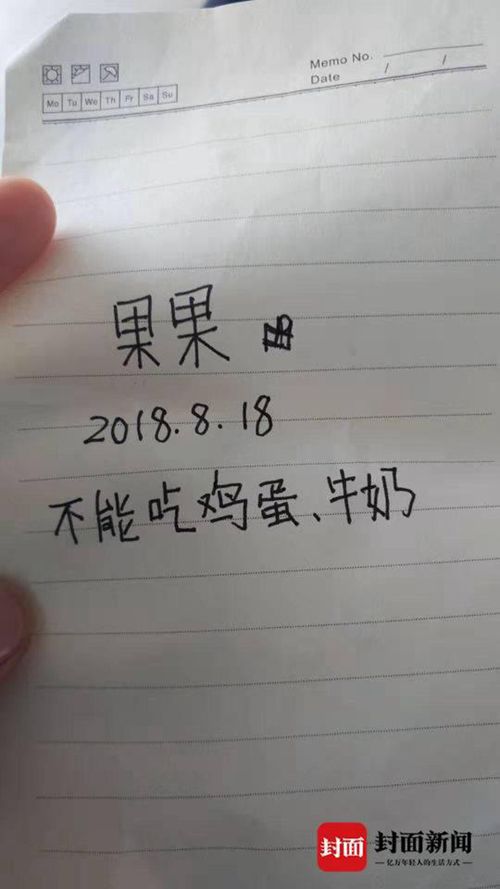 Memo No.
Date / /
Mo Tu We Th Fr Sa Su
果果
2018.8.18
不能吃鸡蛋、牛奶
封面 封面新闻
亿万年轻人的生活方式